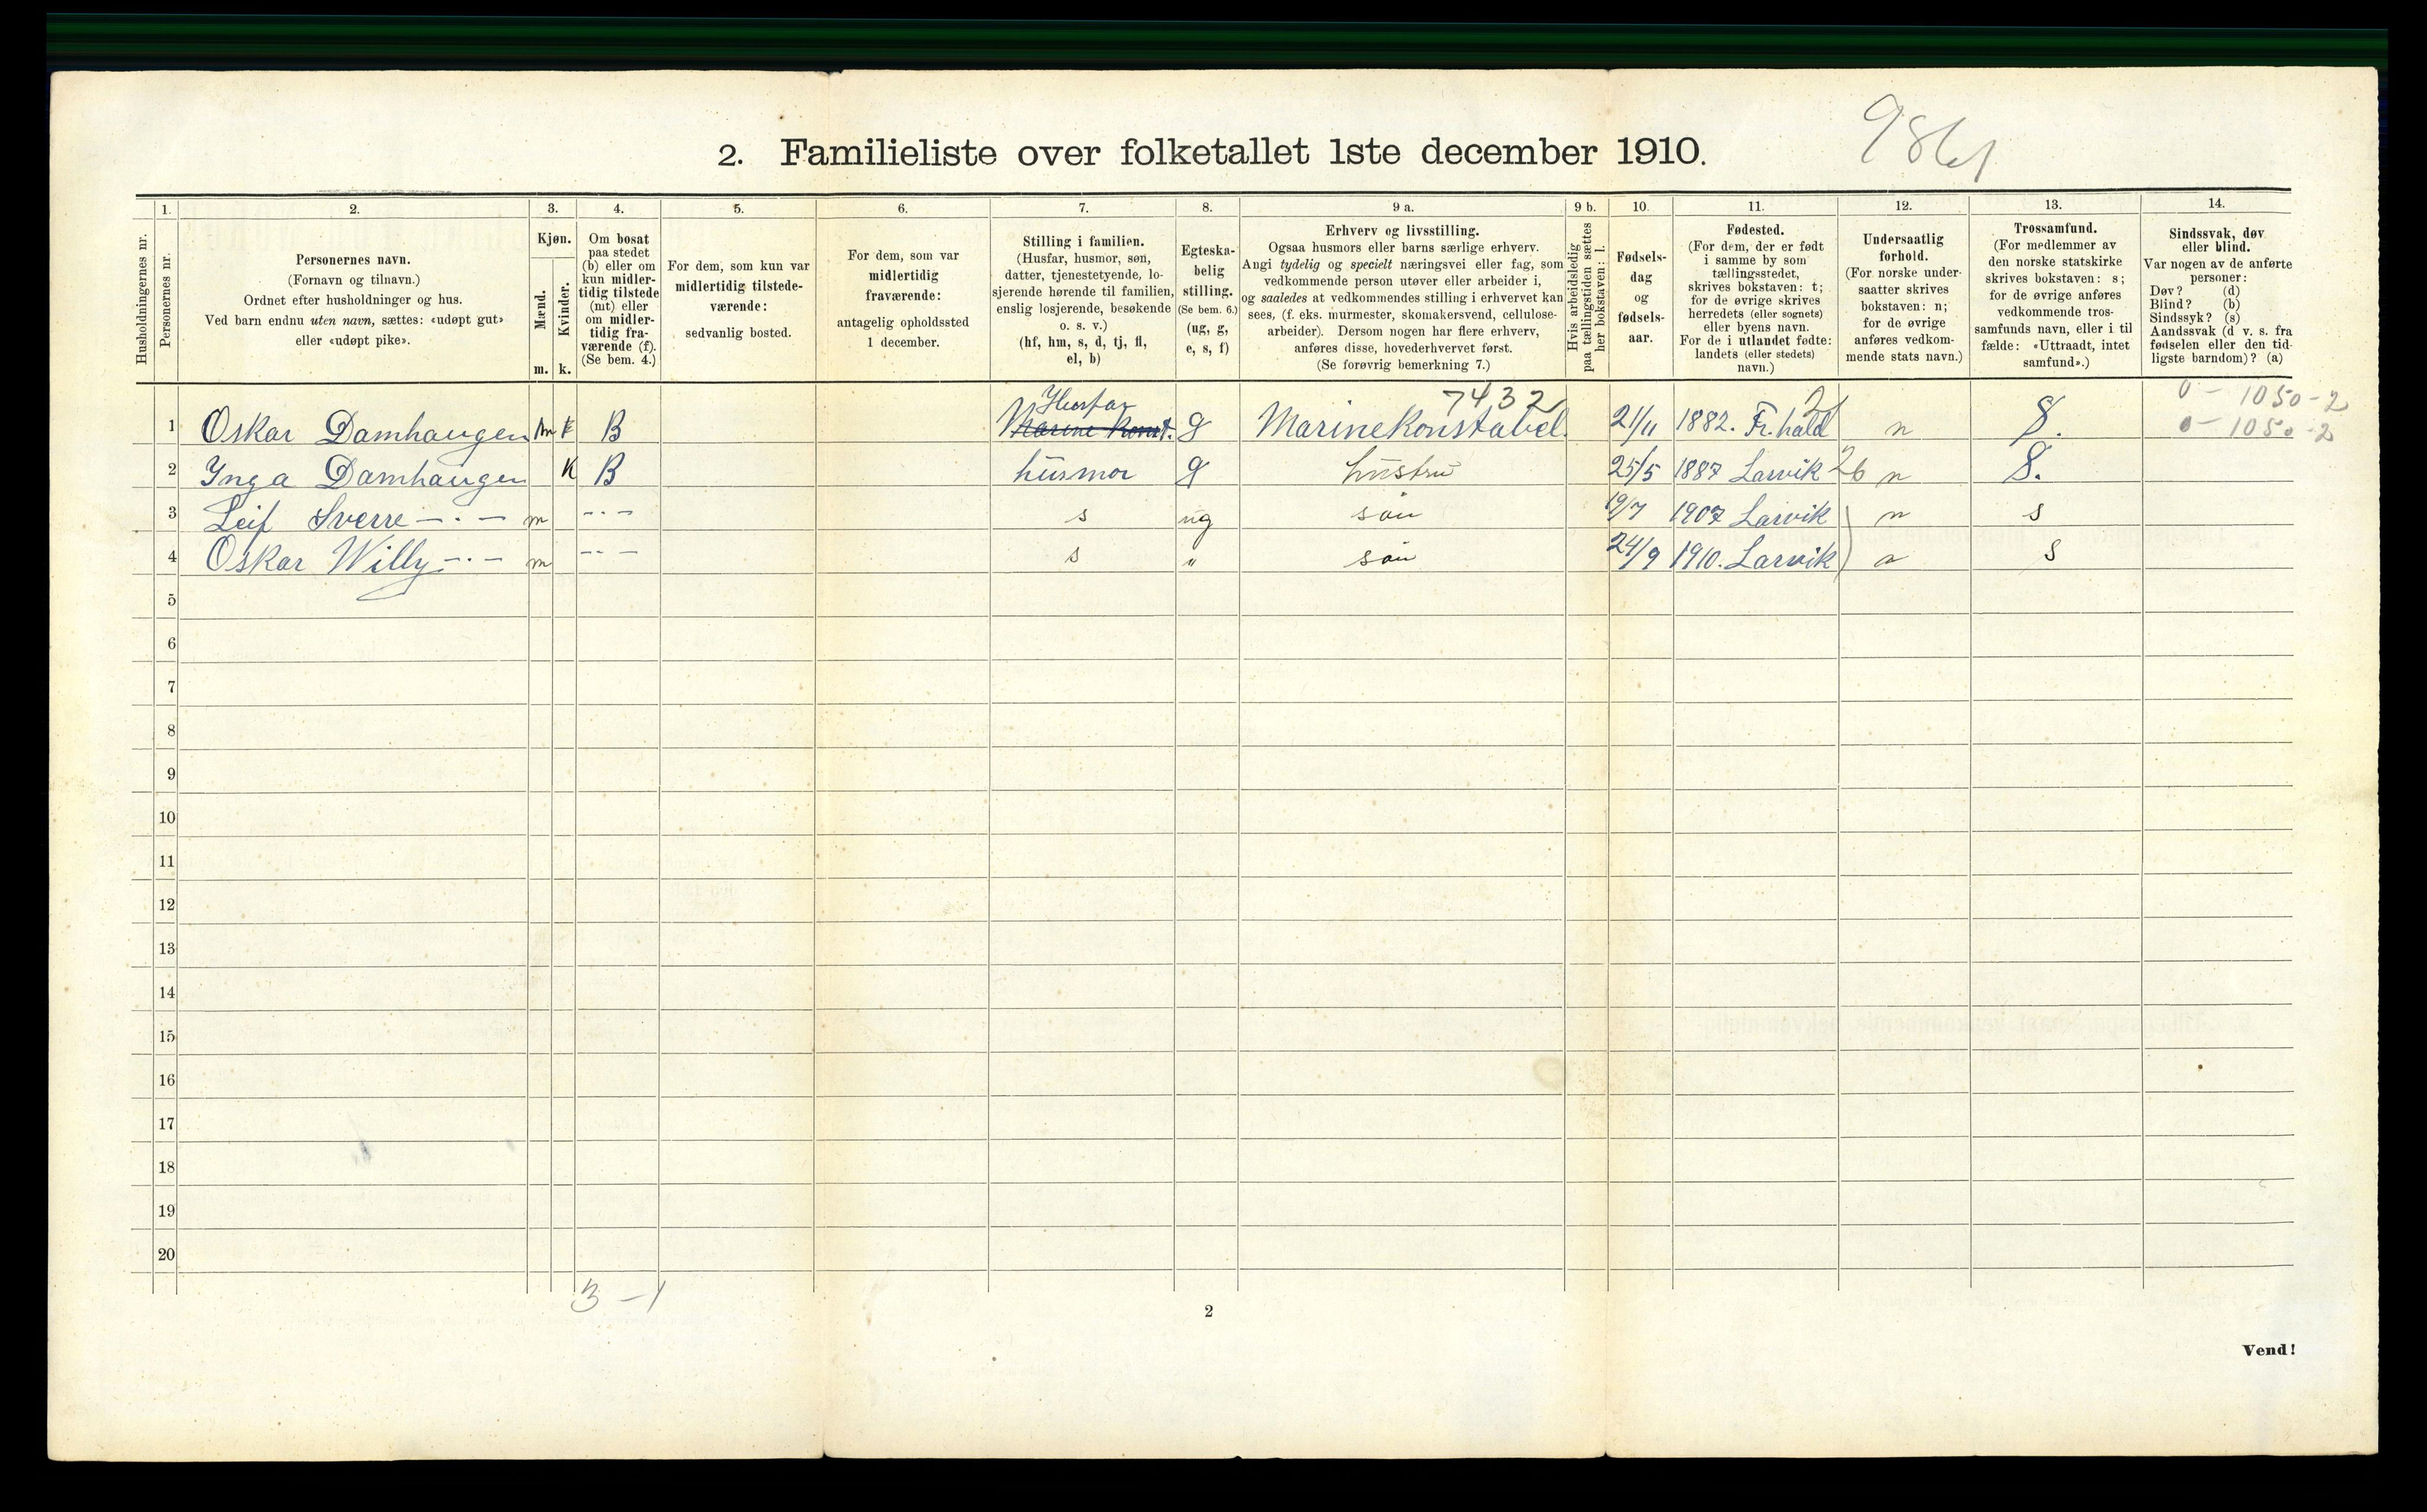 2. Familieliste over folketallet 1ste december 1910.
1. 2. 3. 4. 5. 6. 7. 8. 9 a. 9 b. 10. 11. 12. 13. 14.
Husholdningernes nr.
Personernes nr.
Personernes navn.
(Fornavn og tilnavn.)
Ordnet efter husholdninger og hus.
Ved barn endnu uten navn, sættes: «udøpt gut»
eller «udøpt pike».
Kjøn.
Mænd.
m.
Kvinder.
k.
Om bosat
paa stedet
(b) eller om
kun midler-
tidig tilstede
(mt) eller
om midler-
tidig fra-
værende (f).
(Se bem. 4.)
For dem, som kun var
midlertidig tilstede-
værende:
sedvanlig bosted.
For dem, som var
midlertidig
fraværende:
antagelig opholdssted
1 december.
Stilling i familien.
(Husfar, husmor, søn,
datter, tjenestetyende, lo-
sjerende hørende til familien,
enslig losjerende, besøkende
o. s. v.)
(hf, hm, s, d, tj, fl,
el, b)
Egteska-
belig
stilling.
(Se bem. 6.)
(ug, g,
e, s, f)
Erhverv og livsstilling.
Ogsaa husmors eller barns særlige erhverv.
Angi tydelig og specielt næringsvei eller fag, som
vedkommende person utøver eller arbeider i,
og saaledes at vedkommendes stilling i erhvervet kan
sees, (f. eks. murmester, skomakersvend, cellulose-
arbeider). Dersom nogen har flere erhverv,
anføres disse, hovederhvervet først.
(Se forøvrig bemerkning 7.)
Hvis arbeidsledig
paa tællingstiden sættes
her bokstaven: l.
Fødsels-
dag
og
fødsels-
aar.
Fødested.
(For dem, der er født
i samme by som
tællingsstedet,
skrives bokstaven: t;
for de øvrige skrives
herredets (eller sognets)
eller byens navn.
For de i utlandet fødte:
landets (eller stedets)
navn.)
Undersaatlig
forhold.
(For norske under-
saatter skrives
bokstaven: n;
for de øvrige
anføres vedkom-
mende stats navn.)
Trossamfund.
(For medlemmer av
den norske statskirke
skrives bokstaven: s;
for de øvrige anføres
vedkommende tros-
samfunds navn, eller i til
fælde: «Uttraadt, intet
samfund».)
Sindssvak, døv
eller blind.
Var nogen av de anførte
personer:
Døv? (d)
Blind? (b)
Sindssyk? (s)
Aandssvak (d v. s. fra
fødselen eller den tid-
ligste barndom)? (a)
Husfar 7432 0 - 1050 - 2
1 Oskar Damhaugen m k B Marine Konst. g Marinekonstabel. 21/11 1882. Fr.hald n S. 0 - 1050 - 2
2 Inga Damhaugen K B husmor g hustru 25/5 1887 Larvik 26 n S.
3 Leif Sverre -"- m -"- s ug søn 19/7 1907 Larvik n s
4 Oskar Willy -"- m -"- s " søn 24/9 1910. Larvik n s
5
6
7
8
9
10
11
12
13
14
15
16
17
18
19
20
3 - 1
2
Vend!